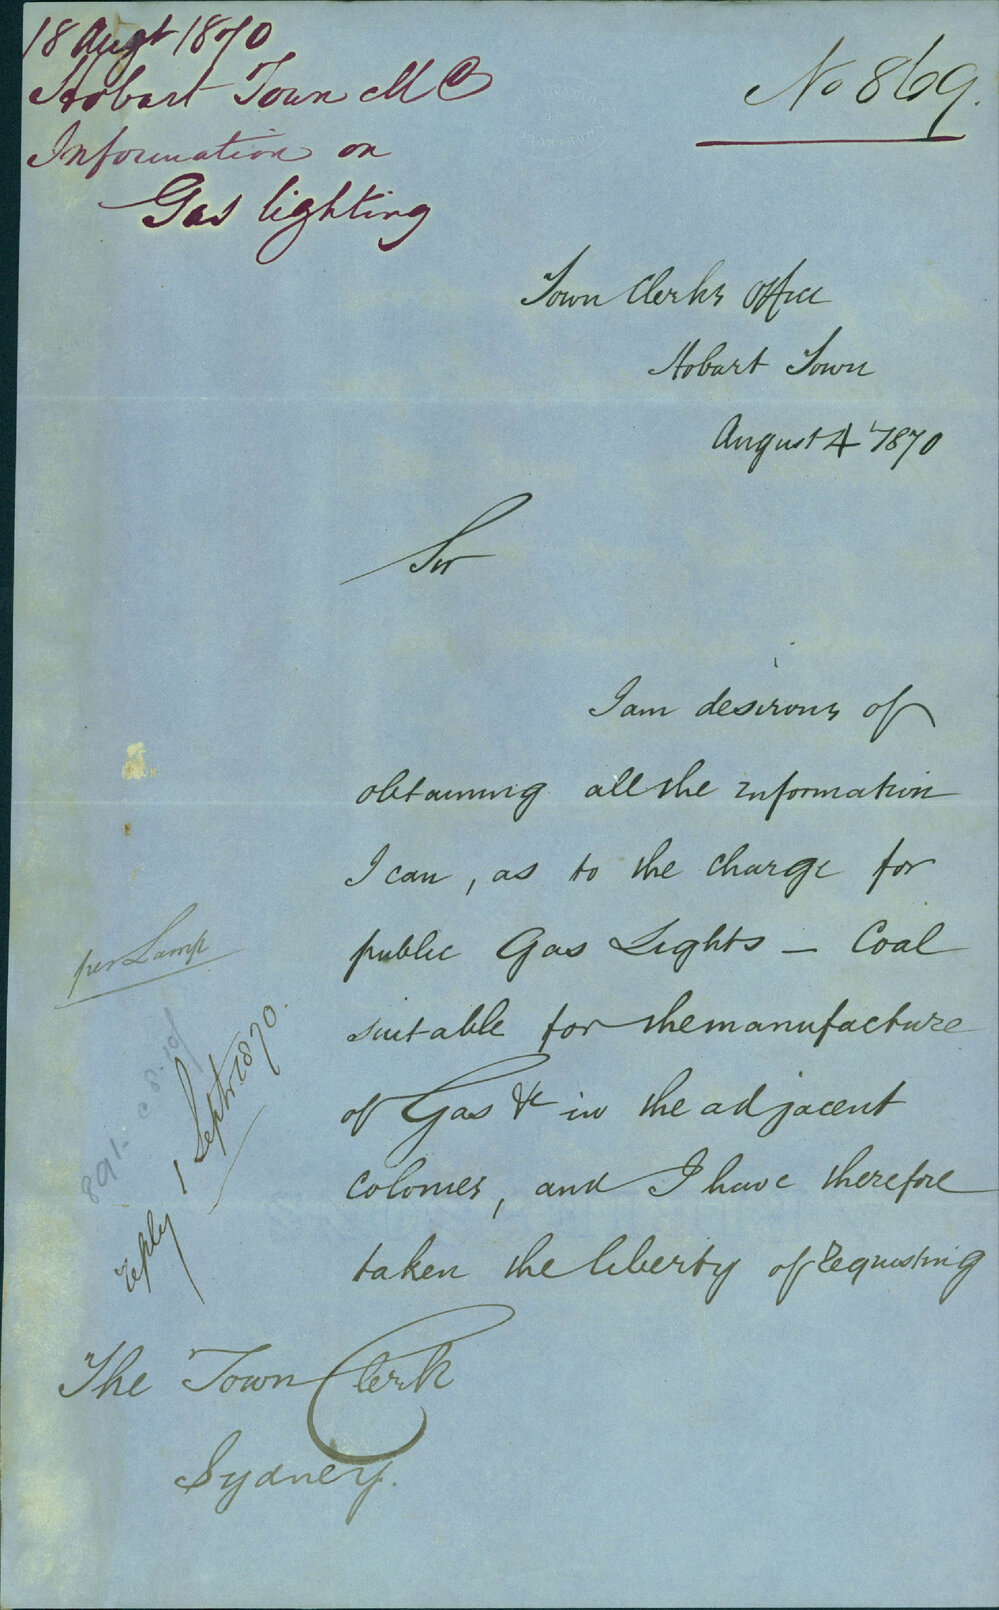 18 Augt 1870
Hobart Town M C
Information on
Gas lighting
No 869.
Town Clerks Office
Hobart Town
August 4 1870
Sir
I am desirous of
obtaining all the information
I can, as to the charge for
public Gas Lights – Coal
suitable for the manufacture
of Gas &c in the adjacent
colonies, and I have therefore
taken the liberty of requesting
per Lamp
reply 1 Septr 1870.
The Town Clerk
Sydney.